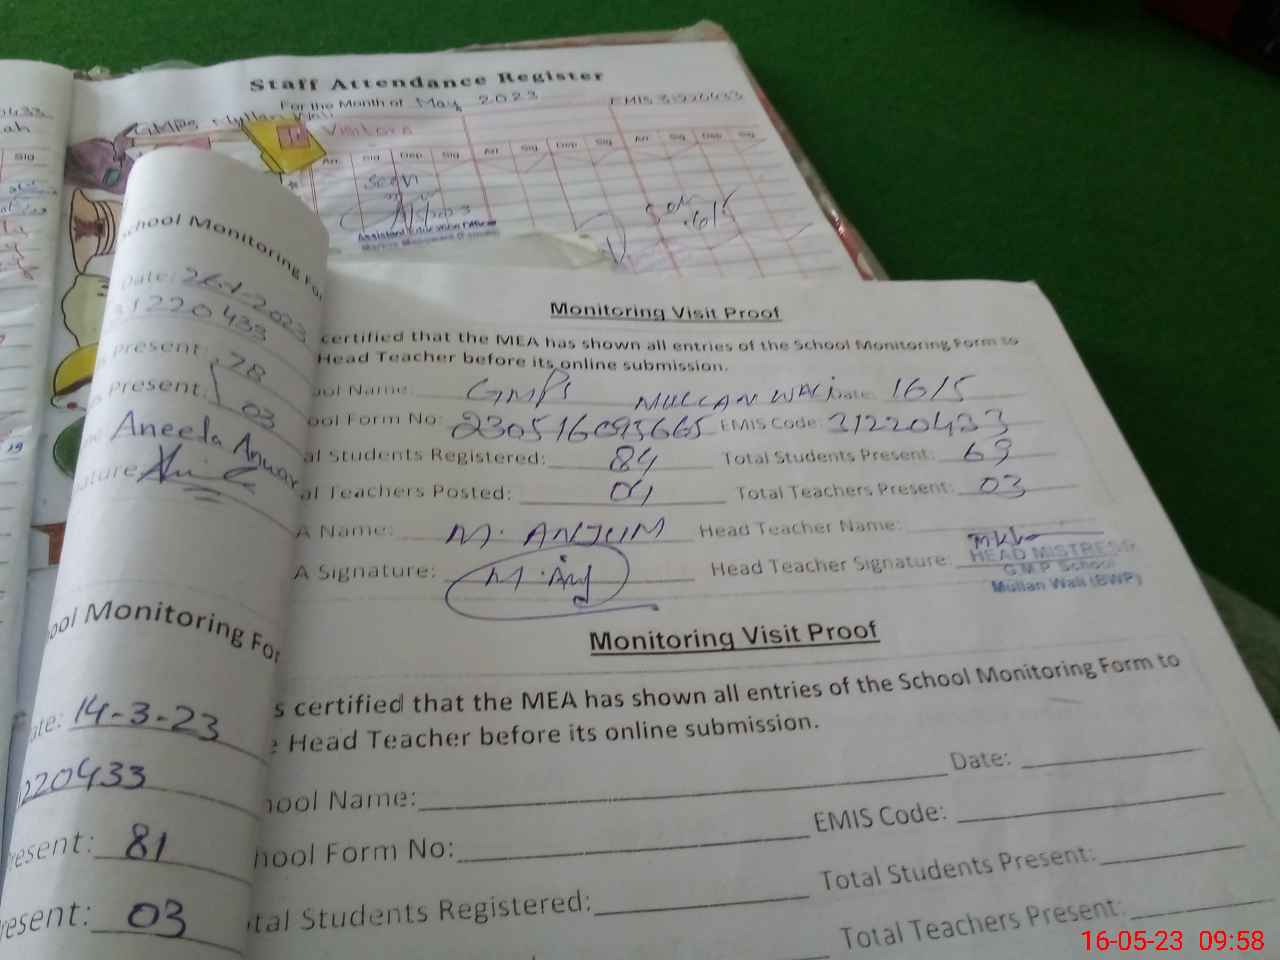 Staff Attendance Register
For the Month of May 2023 EMIS 31220433
GMPS Mullan Wali
Visitors
Arr Sig Dep Sig Arr Sig Dep Sig Arr Sig Dep Sig
Seen
Sig
School Monitoring For
Date: 26-1-2023
31220433
Present: 78
Present: 03
Aneeda Anwar
ature
ool Monitoring For
ate: 14-3-23
220433
resent: 81
resent: 03
Monitoring Visit Proof
certified that the MEA has shown all entries of the School Monitoring Form to
Head Teacher before its online submission.
ool Name: GMPS MULLAN WALI Date: 16/5
ool Form No: 230516093665 EMIS Code: 31220433
al Students Registered: 84 Total Students Present: 69
al Teachers Posted: 04 Total Teachers Present: 03
A Name: M. ANJUM Head Teacher Name:
A Signature: M. Anj Head Teacher Signature:
HEAD MISTRESS
G.M.P School
Mullan Wali (BWP)
Monitoring Visit Proof
s certified that the MEA has shown all entries of the School Monitoring Form to
e Head Teacher before its online submission.
hool Name: Date:
hool Form No: EMIS Code:
tal Students Registered: Total Students Present:
Total Teachers Present:
16-05-23 09:58